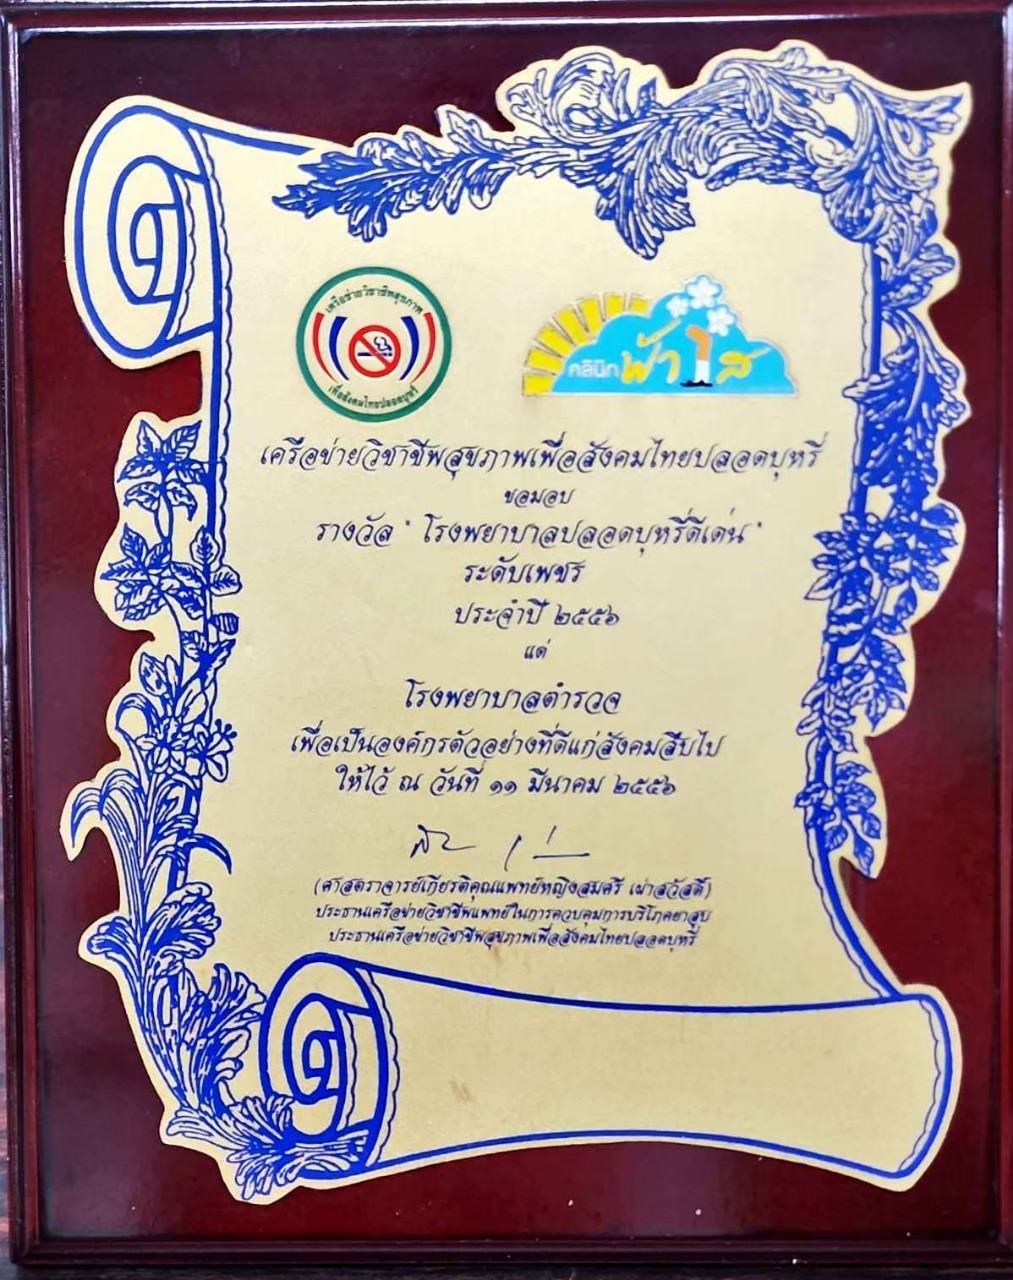 เครือข่ายวิชาชีพสุขภาพ
เพื่อสังคมไทยปลอดบุหรี่
คลินิกฟ้าใส
เครือข่ายวิชาชีพสุขภาพเพื่อสังคมไทยปลอดบุหรี่
ขอมอบ
รางวัล " โรงพยาบาลปลอดบุหรี่ดีเด่น "
ระดับเพชร
ประจำปี ๒๕๕๖
แด่
โรงพยาบาลตำรวจ
เพื่อเป็นองค์กรตัวอย่างที่ดีแก่สังคมสืบไป
ให้ไว้ ณ วันที่ ๑๑ มีนาคม ๒๕๕๖
(ศาสตราจารย์เกียรติคุณแพทย์หญิงสมศรี เผ่าสวัสดิ์)
ประธานเครือข่ายวิชาชีพแพทย์ในการควบคุมการบริโภคยาสูบ
ประธานเครือข่ายวิชาชีพสุขภาพเพื่อสังคมไทยปลอดบุหรี่